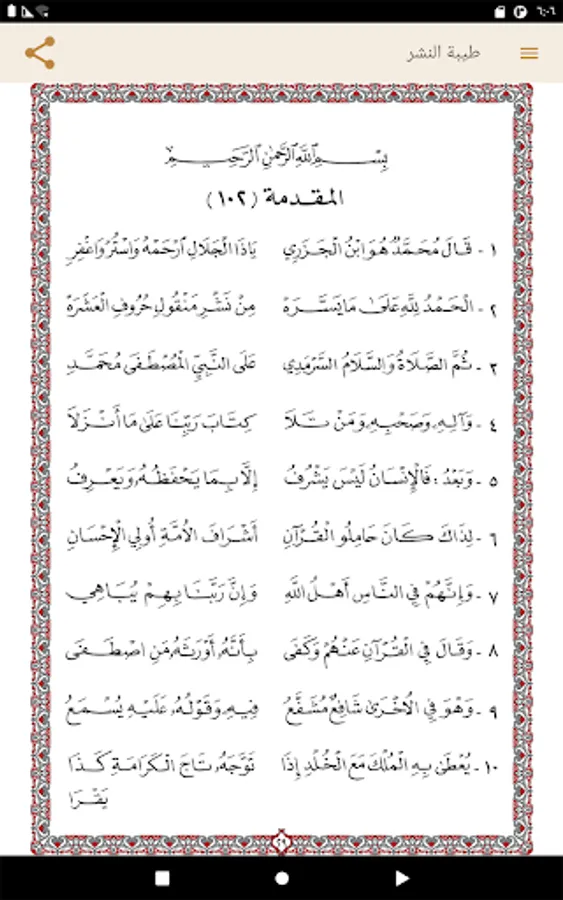 ٦:٠٦
طيبة النشر
بِسْمِ اللَّهِ الرَّحْمَٰنِ الرَّحِيمِ
المقدمة (١٠٢)
١ - قَالَ مُحَمَّدٌ هُوَ ابْنُ الْجَزَرِي يَاذَا الْجَلَالِ ارْحَمْهُ وَاسْتُرْ وَاغْفِرِ
٢ - الْحَمْدُ لِلَّهِ عَلَىٰ مَا يَسَّرَهْ مِنْ نَشْرِ مَنْقُولِ حُرُوفِ الْعَشَرَهْ
٣ - ثُمَّ الصَّلَاةُ وَالسَّلَامُ السَّرْمَدِي عَلَى النَّبِيِّ الْمُصْطَفَى مُحَمَّدِ
٤ - وَآلِهِ وَصَحْبِهِ وَمَنْ تَلَا كِتَابَ رَبِّنَا عَلَى مَا أَنْزَلَا
٥ - وَبَعْدُ: فَالْإِنْسَانُ لَيْسَ يَشْرُفُ إِلَّا بِمَا يَحْفَظُهُ وَيَعْرِفُ
٦ - لِذَاكَ كَانَ حَامِلُو الْقُرْآنِ أَشْرَافَ الْأُمَّةِ أُولِي الْإِحْسَانِ
٧ - وَإِنَّهُمْ فِي النَّاسِ أَهْلُ اللَّهِ وَإِنَّ رَبَّنَا بِهِمْ يُبَاهِي
٨ - وَقَالَ فِي الْقُرْآنِ عَنْهُمْ وَكَفَى بِأَنَّهُ أَوْرَثَهُ مَنِ اصْطَفَى
٩ - وَهْوَ فِي الْأُخْرَىٰ شَافِعٌ مُشَفَّعُ فِيهِ وَقَوْلُهُ عَلَيْهِ يُسْمَعُ
١٠ - يُعْطَىٰ بِهِ الْمُلْكَ مَعَ الْخُلْدِ إِذَا تَوَّجَهُ تَاجَ الْكَرَامَةِ كَذَا
يَقْرَا